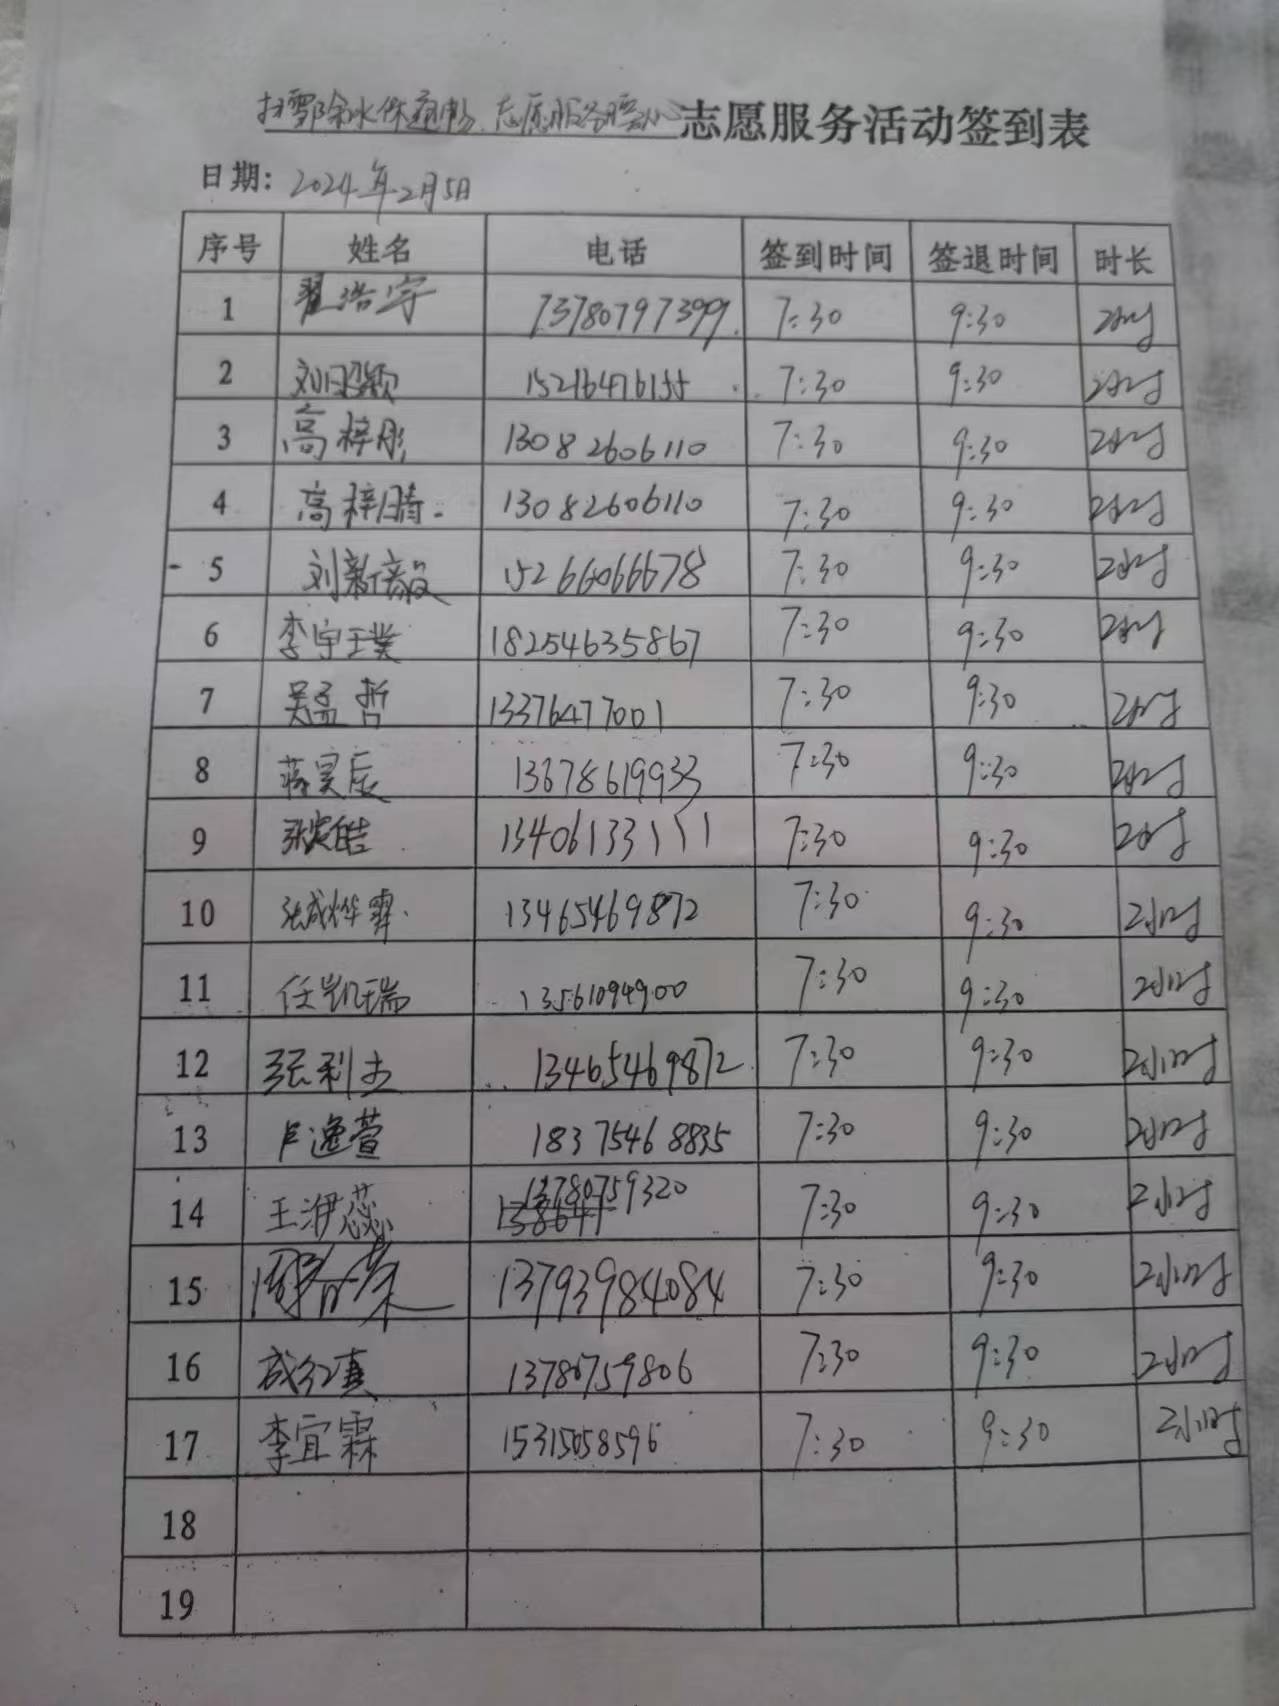 扫雪除冰保通畅、志愿服务暖人心志愿服务活动签到表
日期：2024年2月5日
序号 姓名 电话 签到时间 签退时间 时长
1 翟浩宇 13780797399. 7:30 9:30 2小时
2 刘昭颖 15216476155 7:30 9:30 2小时
3 高梓彤 13082606110 7:30 9:30 2小时
4 高梓晴 13082606110 7:30 9:30 2小时
5 刘新毅 15266066678 7:30 9:30 2小时
6 李宇璞 18254635867 7:30 9:30 2小时
7 吴孟哲 13376477001 7:30 9:30 2小时
8 蒋昊辰 13678619933 7:30 9:30 2小时
9 13406133111 7:30 9:30 2小时
10 张成烨霏 13465469872 7:30 9:30 2小时
11 任凯瑞 13561094900 7:30 9:30 2小时
12 张利杰 13465469872 7:30 9:30 2小时
13 卢逸萱 18375468835 7:30 9:30 2小时
14 王洢蕊 13780759320 7:30 9:30 2小时
138647
15 13793984084 7:30 9:30 2小时
16 成红真 13780759806 7:30 9:30 2小时
17 李宜霖 15315058596 7:30 9:30 2小时
18
19